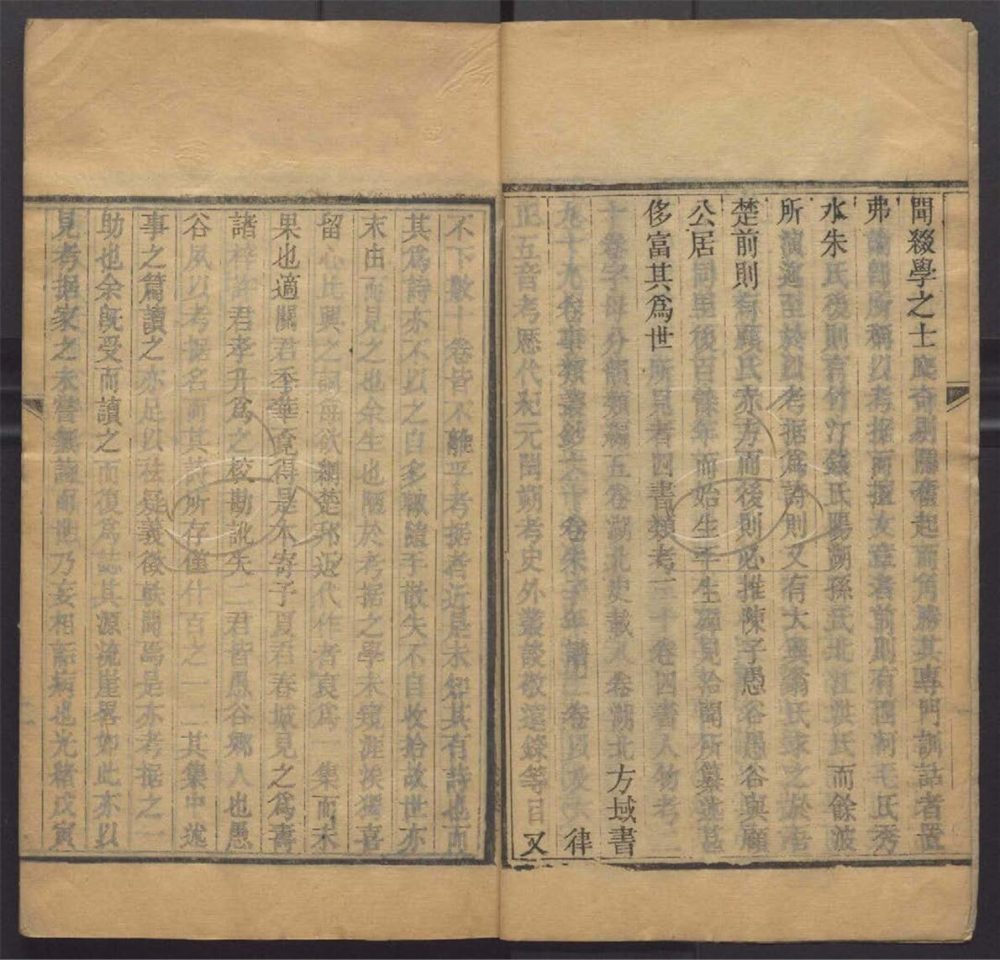 聞綴學之士麇奇別關舊起而角勝其專門訓詁者置
弗論卽所稱以考據而擅文章者前則有毛氏秀
水朱氏後則有竹汀錢氏陽湖孫氏北江洪氏而餘波
所演迤至於以考據爲詩則又有大興翁氏球之於吾
楚前則有顧氏赤方而後則必推陳子愚谷愚谷與顧
公居同里後百餘年而始生平生所纂述甚
侈富其爲世所見者四書類考三十卷四書人物考二
十卷字母分韻類編五卷湖北史載八卷湖北方域書
九十九卷事類叢鈔六十卷朱子年譜二卷以及律
正五音考歷代紀元閏朔考史外叢談敬遠錄等目又
不下數十卷皆不離乎考據者近是未知其有詩也而
其爲詩亦不以之自多輒隨手散失不自收拾故世亦
末由而見之也余生也晚於考據之學未窺涯涘獨喜
留心比興之詞每欲網楚邦近代作者裒爲一集而未
果也適關君季華竟得是本寄子夏君春城見之爲壽
諸梓許君孝升爲之校勘訛失二君皆愚谷鄉人也愚
谷夙以考据名而其詩所存僅什百之一二其集中述
事之篇讀之亦足以祛疑義後軼聞焉是亦考据之一
助也余旣受而讀之而復爲誌其源流崖畧如此亦以
見考据家之未嘗無詩而世乃妄相詬病也光緒戊寅